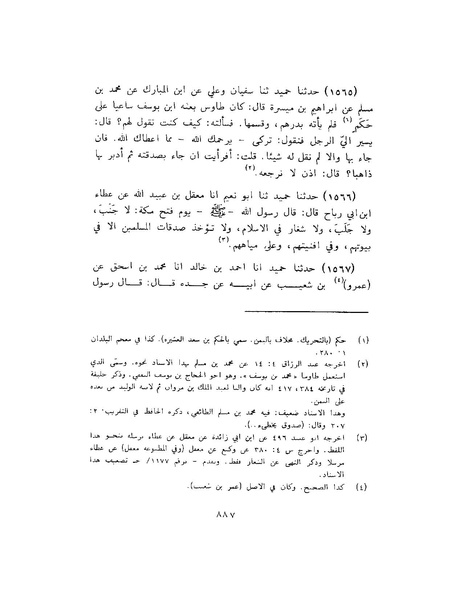 (١٥٦٥) حدثنا حميد ثنا سفيان وعلي عن ابن المبارك عن محمد بن
مسلم عن ابراهيم بن ميسرة قال: كان طاوس بعثه ابن يوسف ساعيا على
حَكَمٍ(١) فلم يأته بدرهم، وقسمها. فسألته: كيف كنت تقول لهم؟ قال:
يسير اليّ الرجل فنقول: تزكى – يرحمك الله – مما اعطاك الله. فان
جاء بها والا لم نقل له شيئا. قلت: أفرأيت ان جاء بصدقته ثم أدبر بها
ذاهبا؟ قال: اذن لا نرجعه.(٢)
(١٥٦٦) حدثنا حميد ثنا ابو نعيم انا معقل بن عبيد الله عن عطاء
ابن ابي رباح قال: قال رسول الله –ﷺ– يوم فتح مكة: لا جَنَبَ،
ولا جَلَبَ، ولا شغار في الاسلام، ولا تؤخذ صدقات المسلمين الا في
بيوتهم، وفي افنيتهم، وعلى مياههم.(٣)
(١٥٦٧) حدثنا حميد انا احمد بن خالد انا محمد بن اسحق عن
(عمرو)(٤) بن شعيب عن أبيه عن جده قال: قال رسول
(١) حكم (بالتحريك. مخلاف باليمن. سمي بالحكم بن سعد العشيرة). كذا في معجم البلدان
٢٨٠.
(٢) اخرجه عبد الرزاق ٤: ١٤ عن محمد بن مسلم بهذا الاسناد نحوه. وسمّى الذي
استعمل طاوسا «محمد بن يوسف». وهو اخو الحجاج بن يوسف الثقفي. وذكر خليفة
في تاريخه ٣٨٤، ٤١٧ انه كان واليا لعبد الملك بن مروان ثم لابنه الوليد من بعده
على اليمن.
وهذا الاسناد ضعيف: فيه محمد بن مسلم الطائفي، ذكره الحافظ في التقريب ٢:
٢٠٧ وقال: (صدوق يخطىء..).
(٣) اخرجه ابو عبيد ٤٩٦ عن ابن ابي زائدة عن معقل عن عطاء يرسله بنحو هذا
اللفظ. واخرج ٤: ٣٨٠ عن وكيع عن معقل (وفي المطبوعة مغفل) عن عطاء
مرسلا وذكر النهى عن الشغار فقط. وتقدم – برقم ١١٧٧/ تضعيف هذا
الاسناد.
(٤) كذا الصحيح. وكان في الاصل (عمر بن شعيب).
٨٨٧